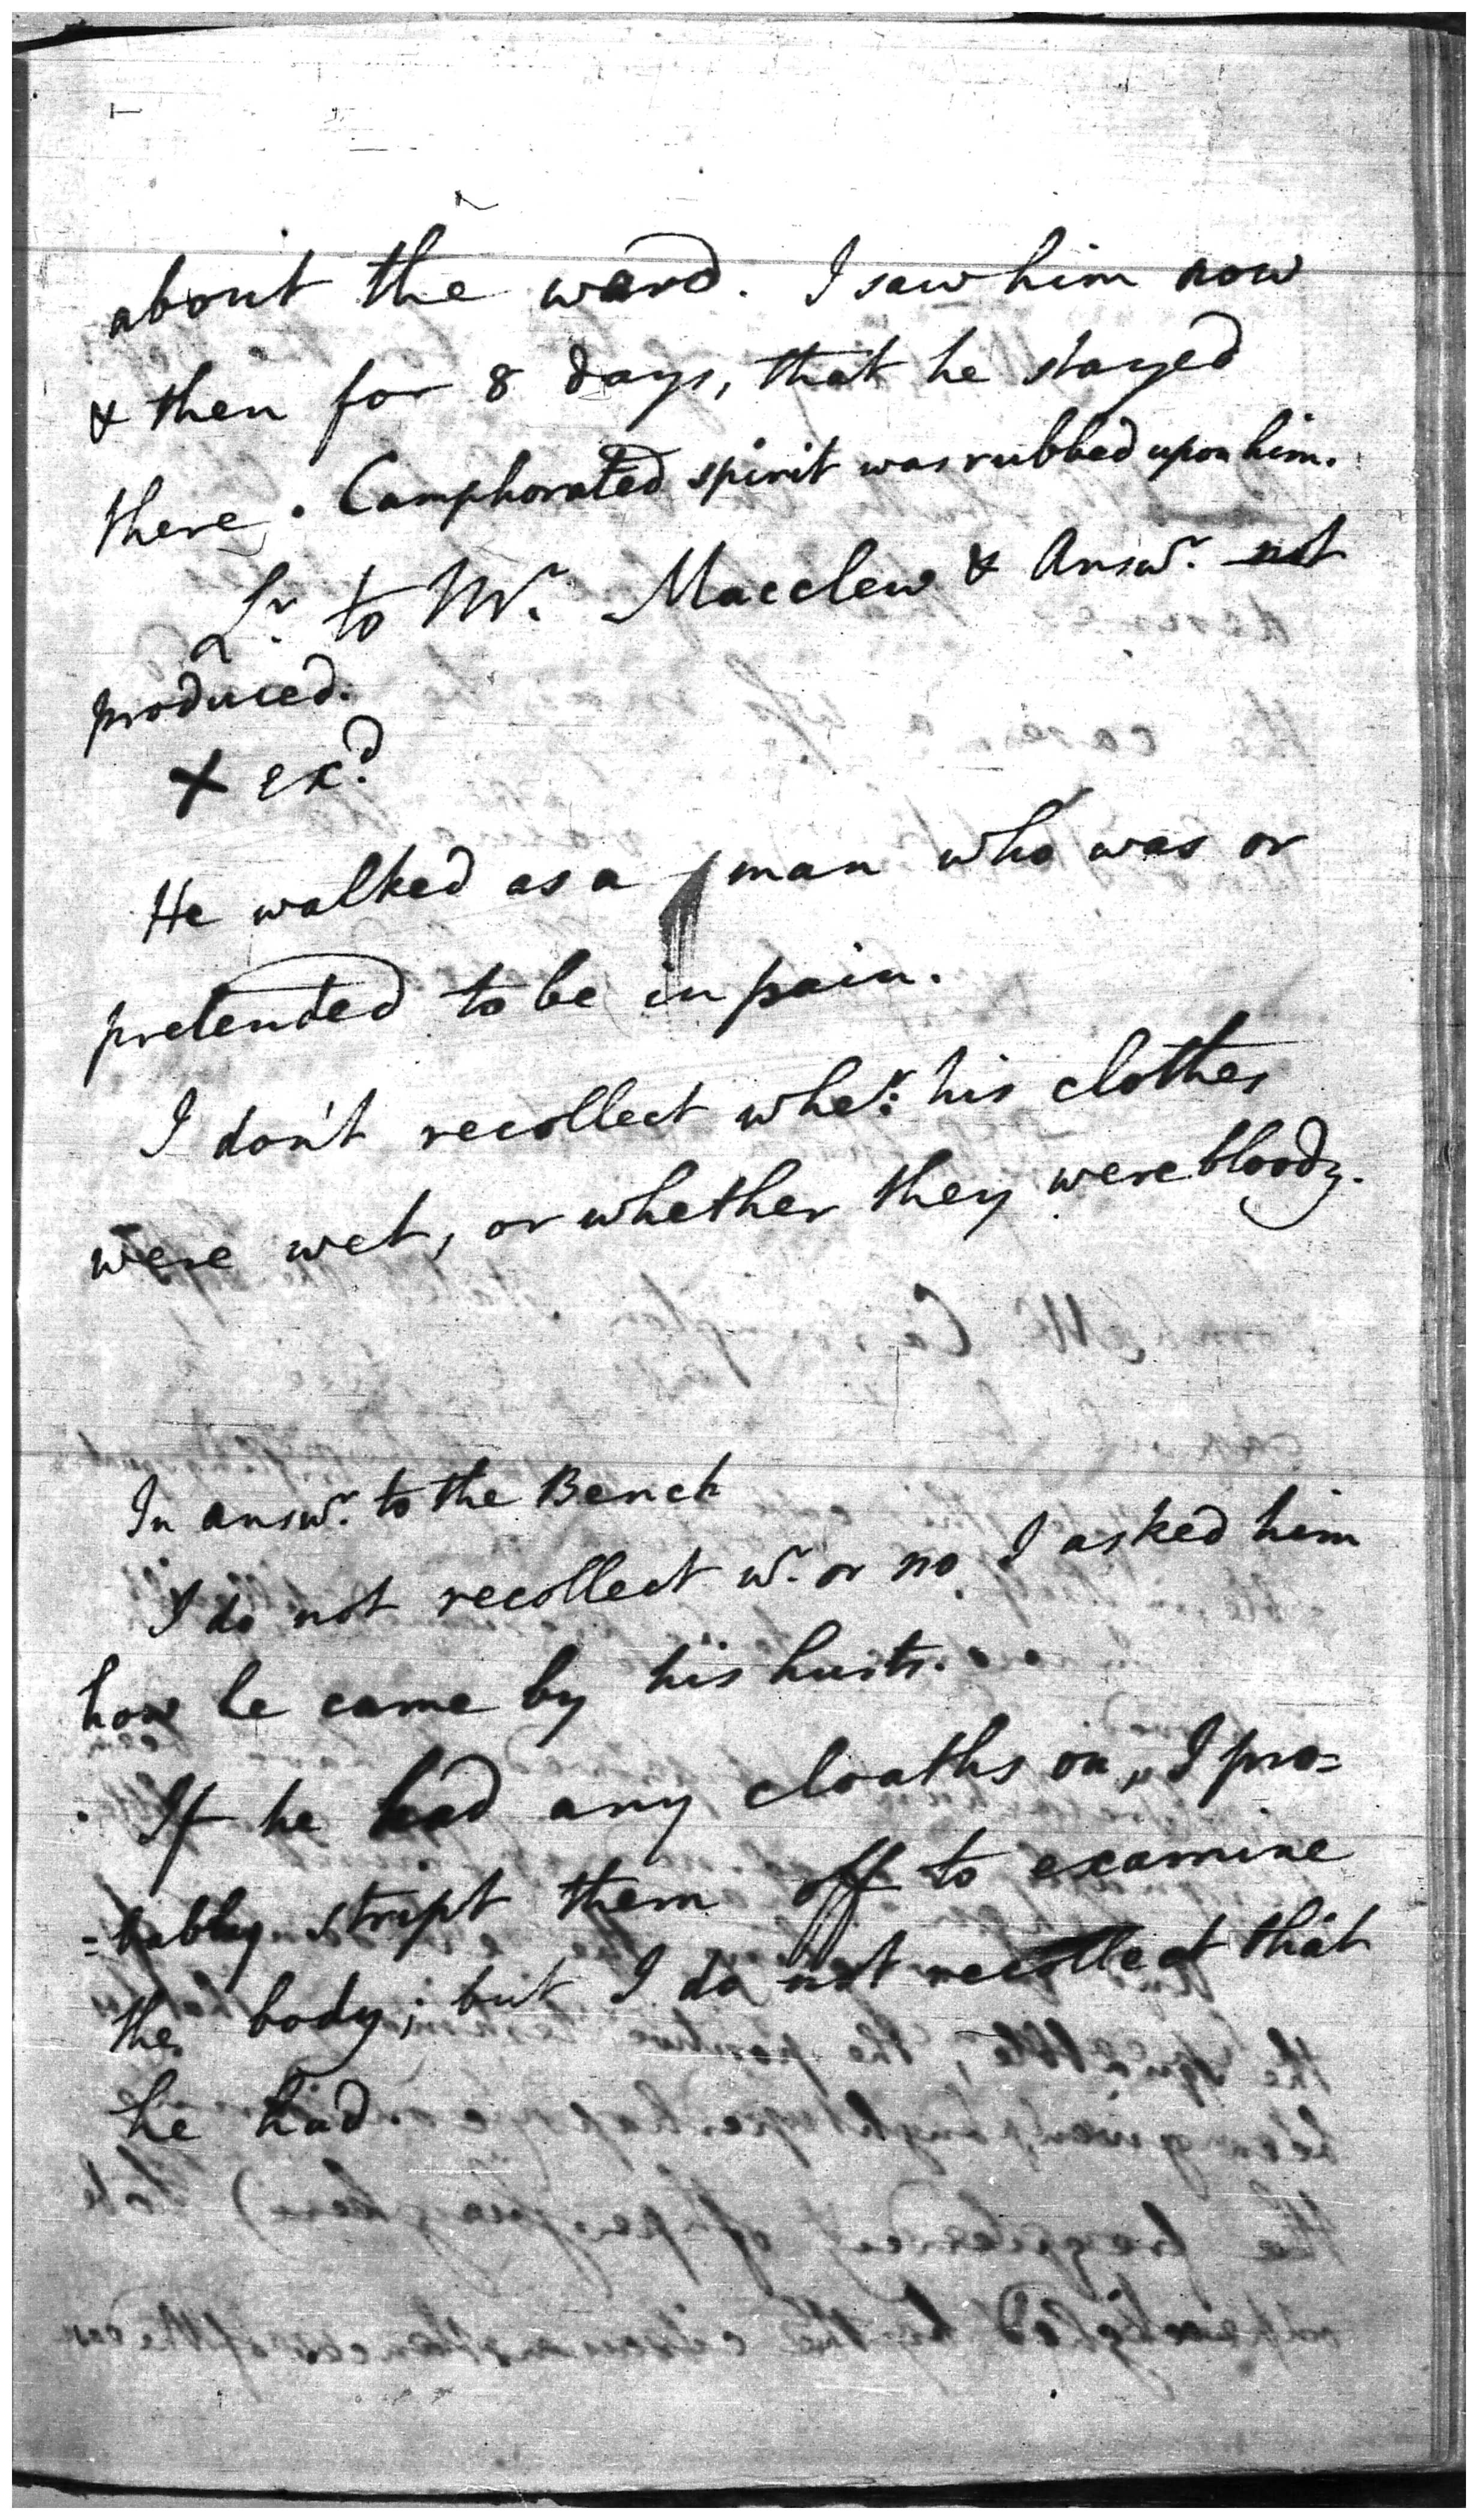 about the ward. I saw him now
& then for 8 days, that he stayed
there. Camphorated spirit was rubbed upon him.
Lr. to Mr. Macclew & Answr. not
produced.
X exd.
He walked as a man who was or
pretended to be in pain.
I don't recollect wher: his clothes
were wet, or whether they were bloody.
In answr. to the Bench
I do not recollect wr. or no I asked him
how he came by his hurts.
If he had any cloaths on, I pro=
=bably stript them off to examine
the body; but I do not recollect that
he had.